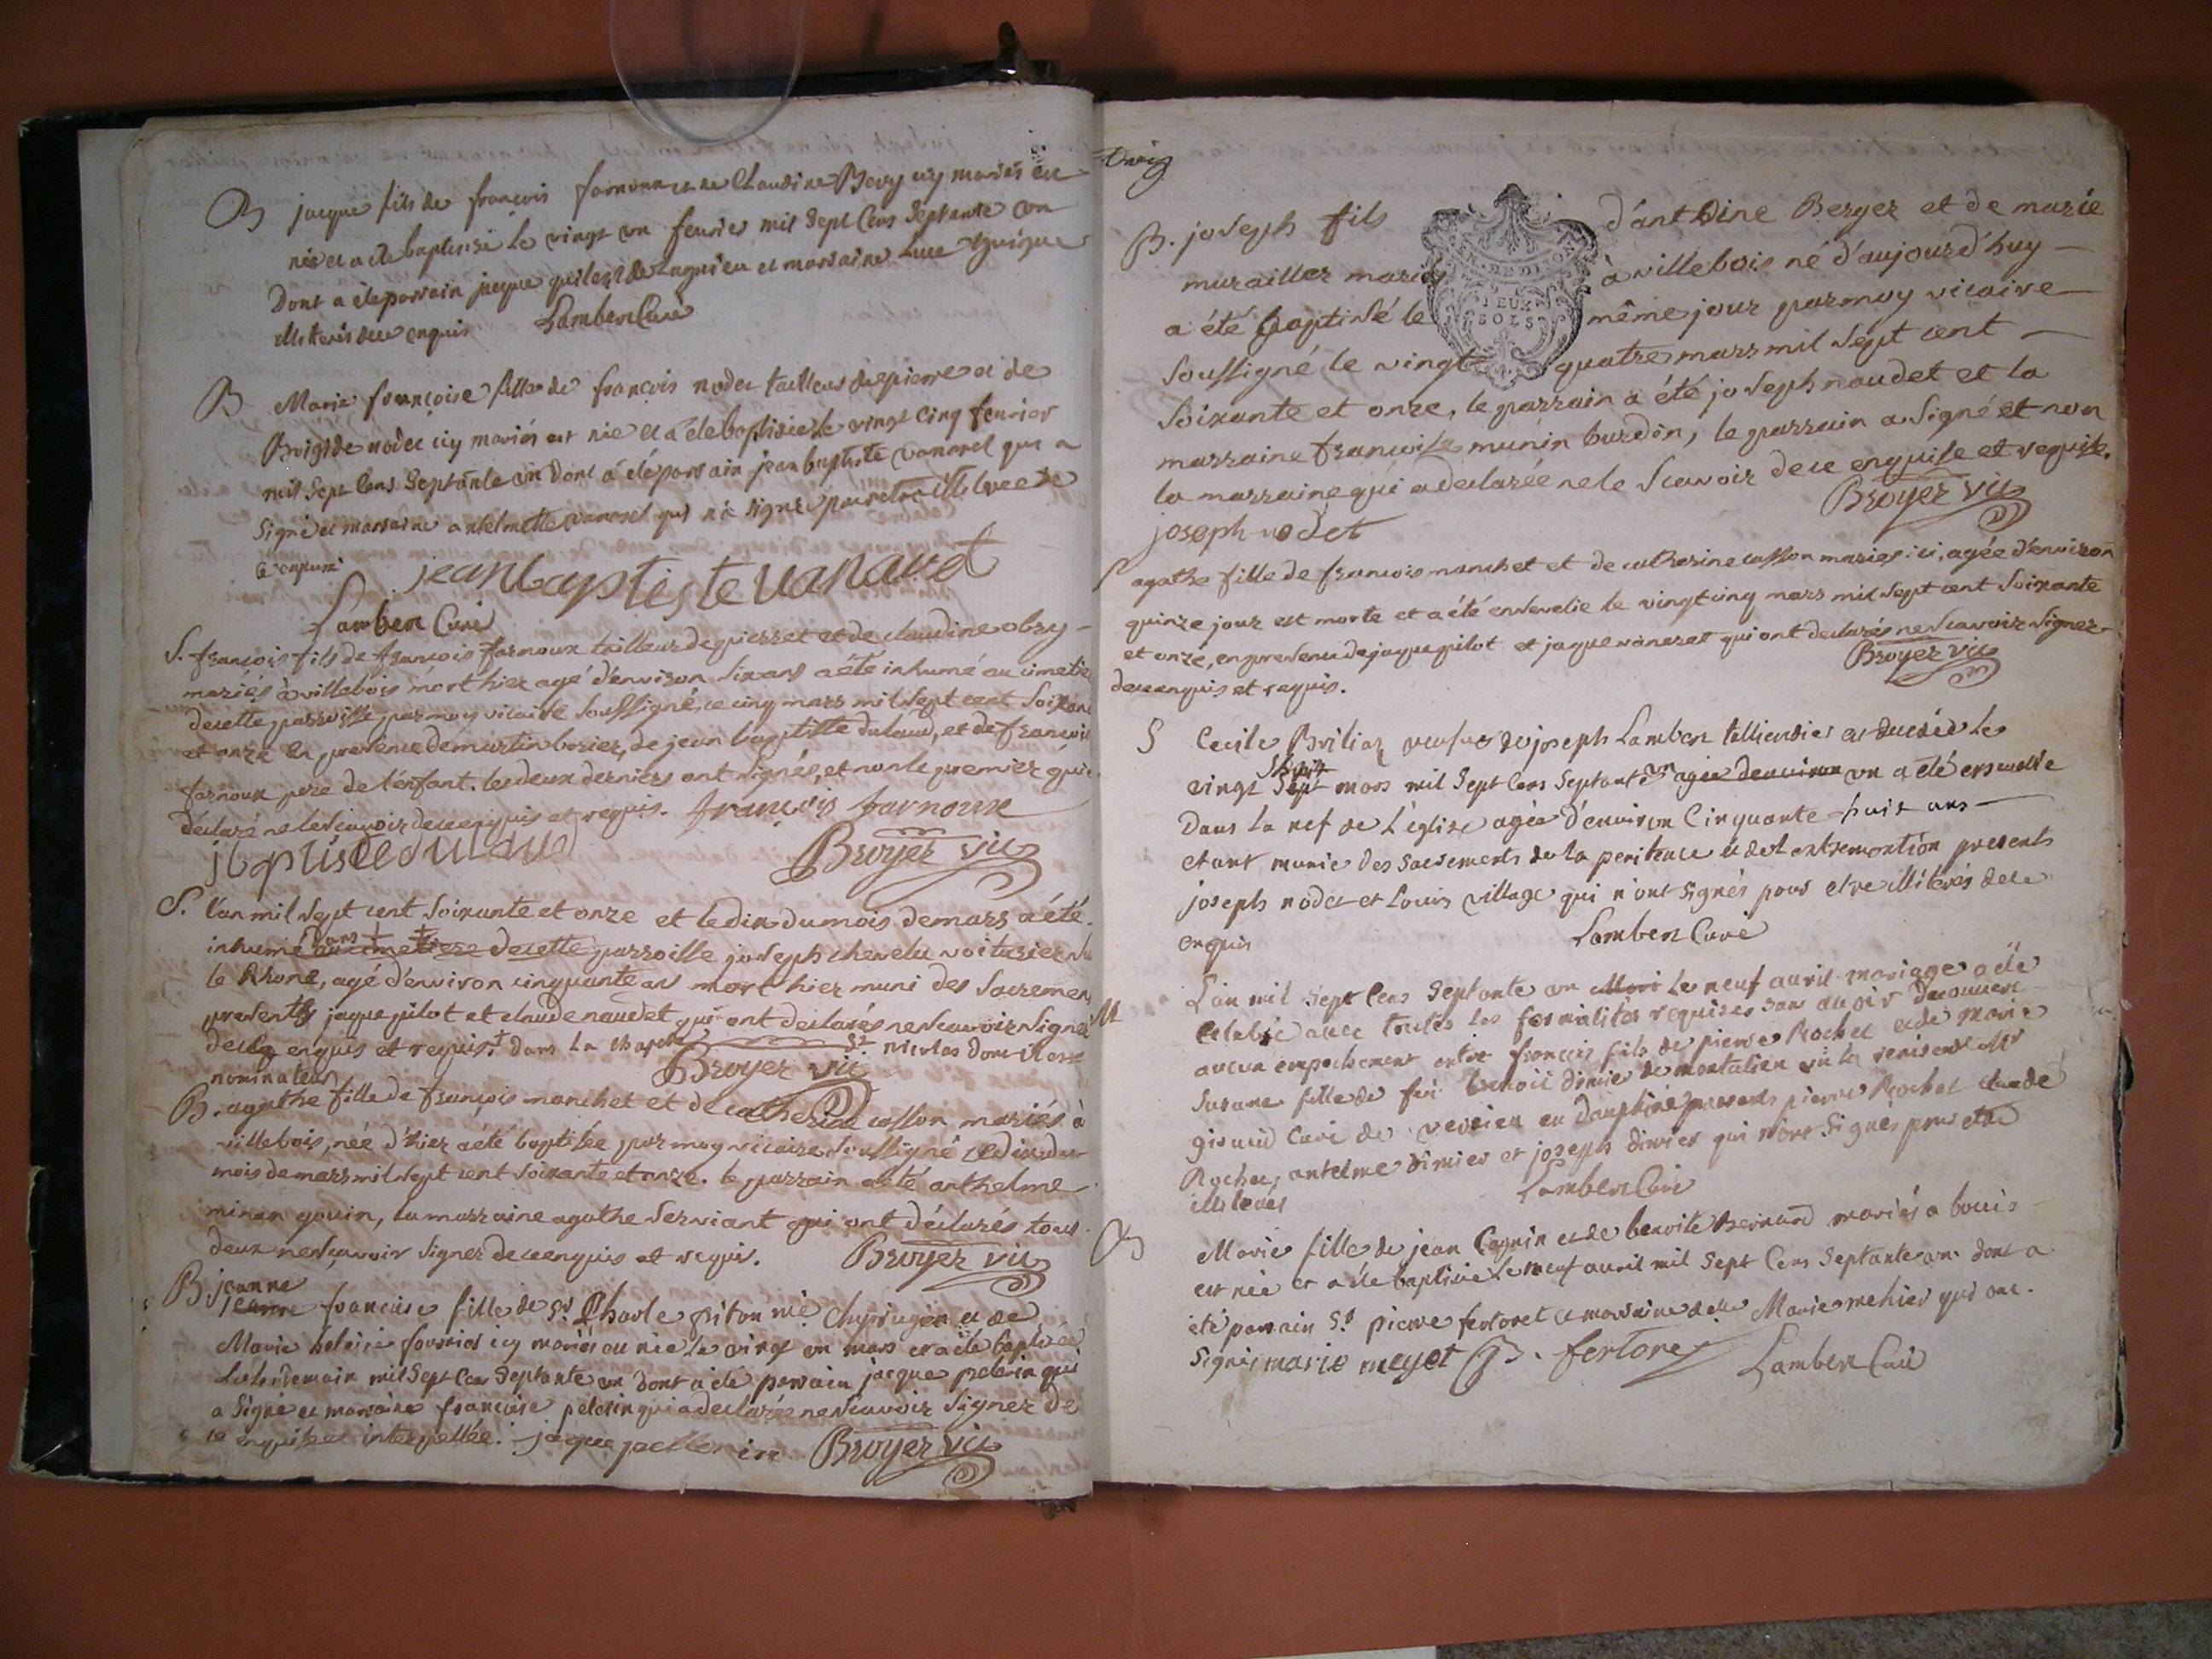 B jacque fils de françois farnoux et de Claudine Bovy icy mariés est
né et a été baptisé le vingt un fevrier mil sept cens septante un
Dont a été parrain jacque quilest de Lagnieu et marraine Luce
illiterés de ce enquis Lambert Curé
B Marie françoise fille de françois nodet tailleur de pierre et de
Brigide nodet icy mariés est née et a été baptisée le vingt cinq fevrier
mil sept cens septante un dont a été parrain jean baptiste vanarel qui a
signé et marraine antelmette vanarel qui n'a signé pour etre illiterée de
ce enquise jean baptiste vanaret
Lambert Curé
S. françois fils de françois farnoux tailleur de pierre et et de claudine obry
mariés à villebois mort hier agé d'environ six ans a été inhumé au cimetie
de cette parroisse par moy vicaire soussigné, ce cinq mars mil sept cent soixan
et onze en presence de martin borier, de jean baptiste dulaud, et de francois
farnoux pere de l'enfant. les deux derniers ont signés, et non le premier qui a
déclaré ne le scavoir de ce enquis et requis. françois farnoux
jbaptiste dulaud Broyer vic
S. l'an mil sept cent soixante et onze et le dix du mois de mars a été
inhumé dans au cimetiere de cette parroisse joseph chevelu voiturier su
le Rhone, agé d'environ cinquante ans mort hier muni des sacremen
presents jaque pilot et claude naudet qui ont declarés ne scavoir signer
de ce enquis et requis. + dans la chapelle St nicolas dont il est
nominateur Broyer vic
B. agathe fille de françois manchet et de catherine casson mariés à
villebois, née d'hier a été baptisée par moy vicaire soussigné le dix du
mois de mars mil sept cent soixante et onze. le parrain a été anthelme
minan gouin, la marraine agathe serviant qui ont déclarés tous
deux ne scavoir signer de ce enquis et requis. Broyer vic
B jeanne
jeanne francoise fille de Sr. Charle piton me. Chyrugien et de
Marie helaine fournier icy mariés est née le vingt un mars et a été baptisée
le lendemain mil sept cens septante un dont a été parrain jacque pelerin qui
a signé et marraine francoise pelerin qui a declarée ne scavoir signer de
ce enquise et interpellée. jaque pellerin Broyer vic
B. joseph fils d'antoine Berger et de marie
murailler mariés à villebois né d'aujourd'huy
a été baptisé le même jour par moy vicaire
soussigné le vingt quatre mars mil sept cent
soixante et onze, le parrain a été joseph naudet et la
marraine francoise munin burdin, le parrain a signé et non
la marraine qui a declarée ne le scavoir de ce enquise et requise.
joseph nodet Broyer vic
DEUX
SOLS
S agathe fille de francois manchet et de catherine casson mariés ici, agée d'environ
quinze jour est morte et a été ensevelie le vingt cinq mars mil sept cent soixante
et onze, en presence de jaque pilot et jaque vanaret qui ont declarés ne scavoir signer
de ce enquis et requis. Broyer vic
S Cecile Briliar veufve de joseph Lambert talliendier est decedée le
vingt sept mars mil sept cens septante un agée d'environ un a été ensevelie
Dans la nef de L'église agée d'environ Cinquante huit ans
etant munie des sacrements de la penitence et de l'extremontion presents
joseph nodet et Louis village qui n'ont signés pour etre illiterés de ce
enquis Lambert Curé
M L'an mil sept cens septante un le neuf avril mariage a été
celebré avec toutes les formalités requises sans avoir decouvert
aucun empechement entre françois fils de pierre Rochet et de Marie
Susane fille de feu benoit dimier de montalieu vu la remise de Msr
giraud curé de vercieu en dauphiné presents pierre Rochet claude
Rochet, antelme dimier et joseph dimier qui n'ont signés pour etre
illiterés Lambert Curé
B Marie fille de jean Cognin et de benoite Bernard mariés a bouis
est née et a été baptisée le neuf avril mil sept cens septante un dont a
été parrain Sr. pierre fertoret et marraine delle Marie mehier qui ont
signés marie meyet P. fertoret Lambert Curé